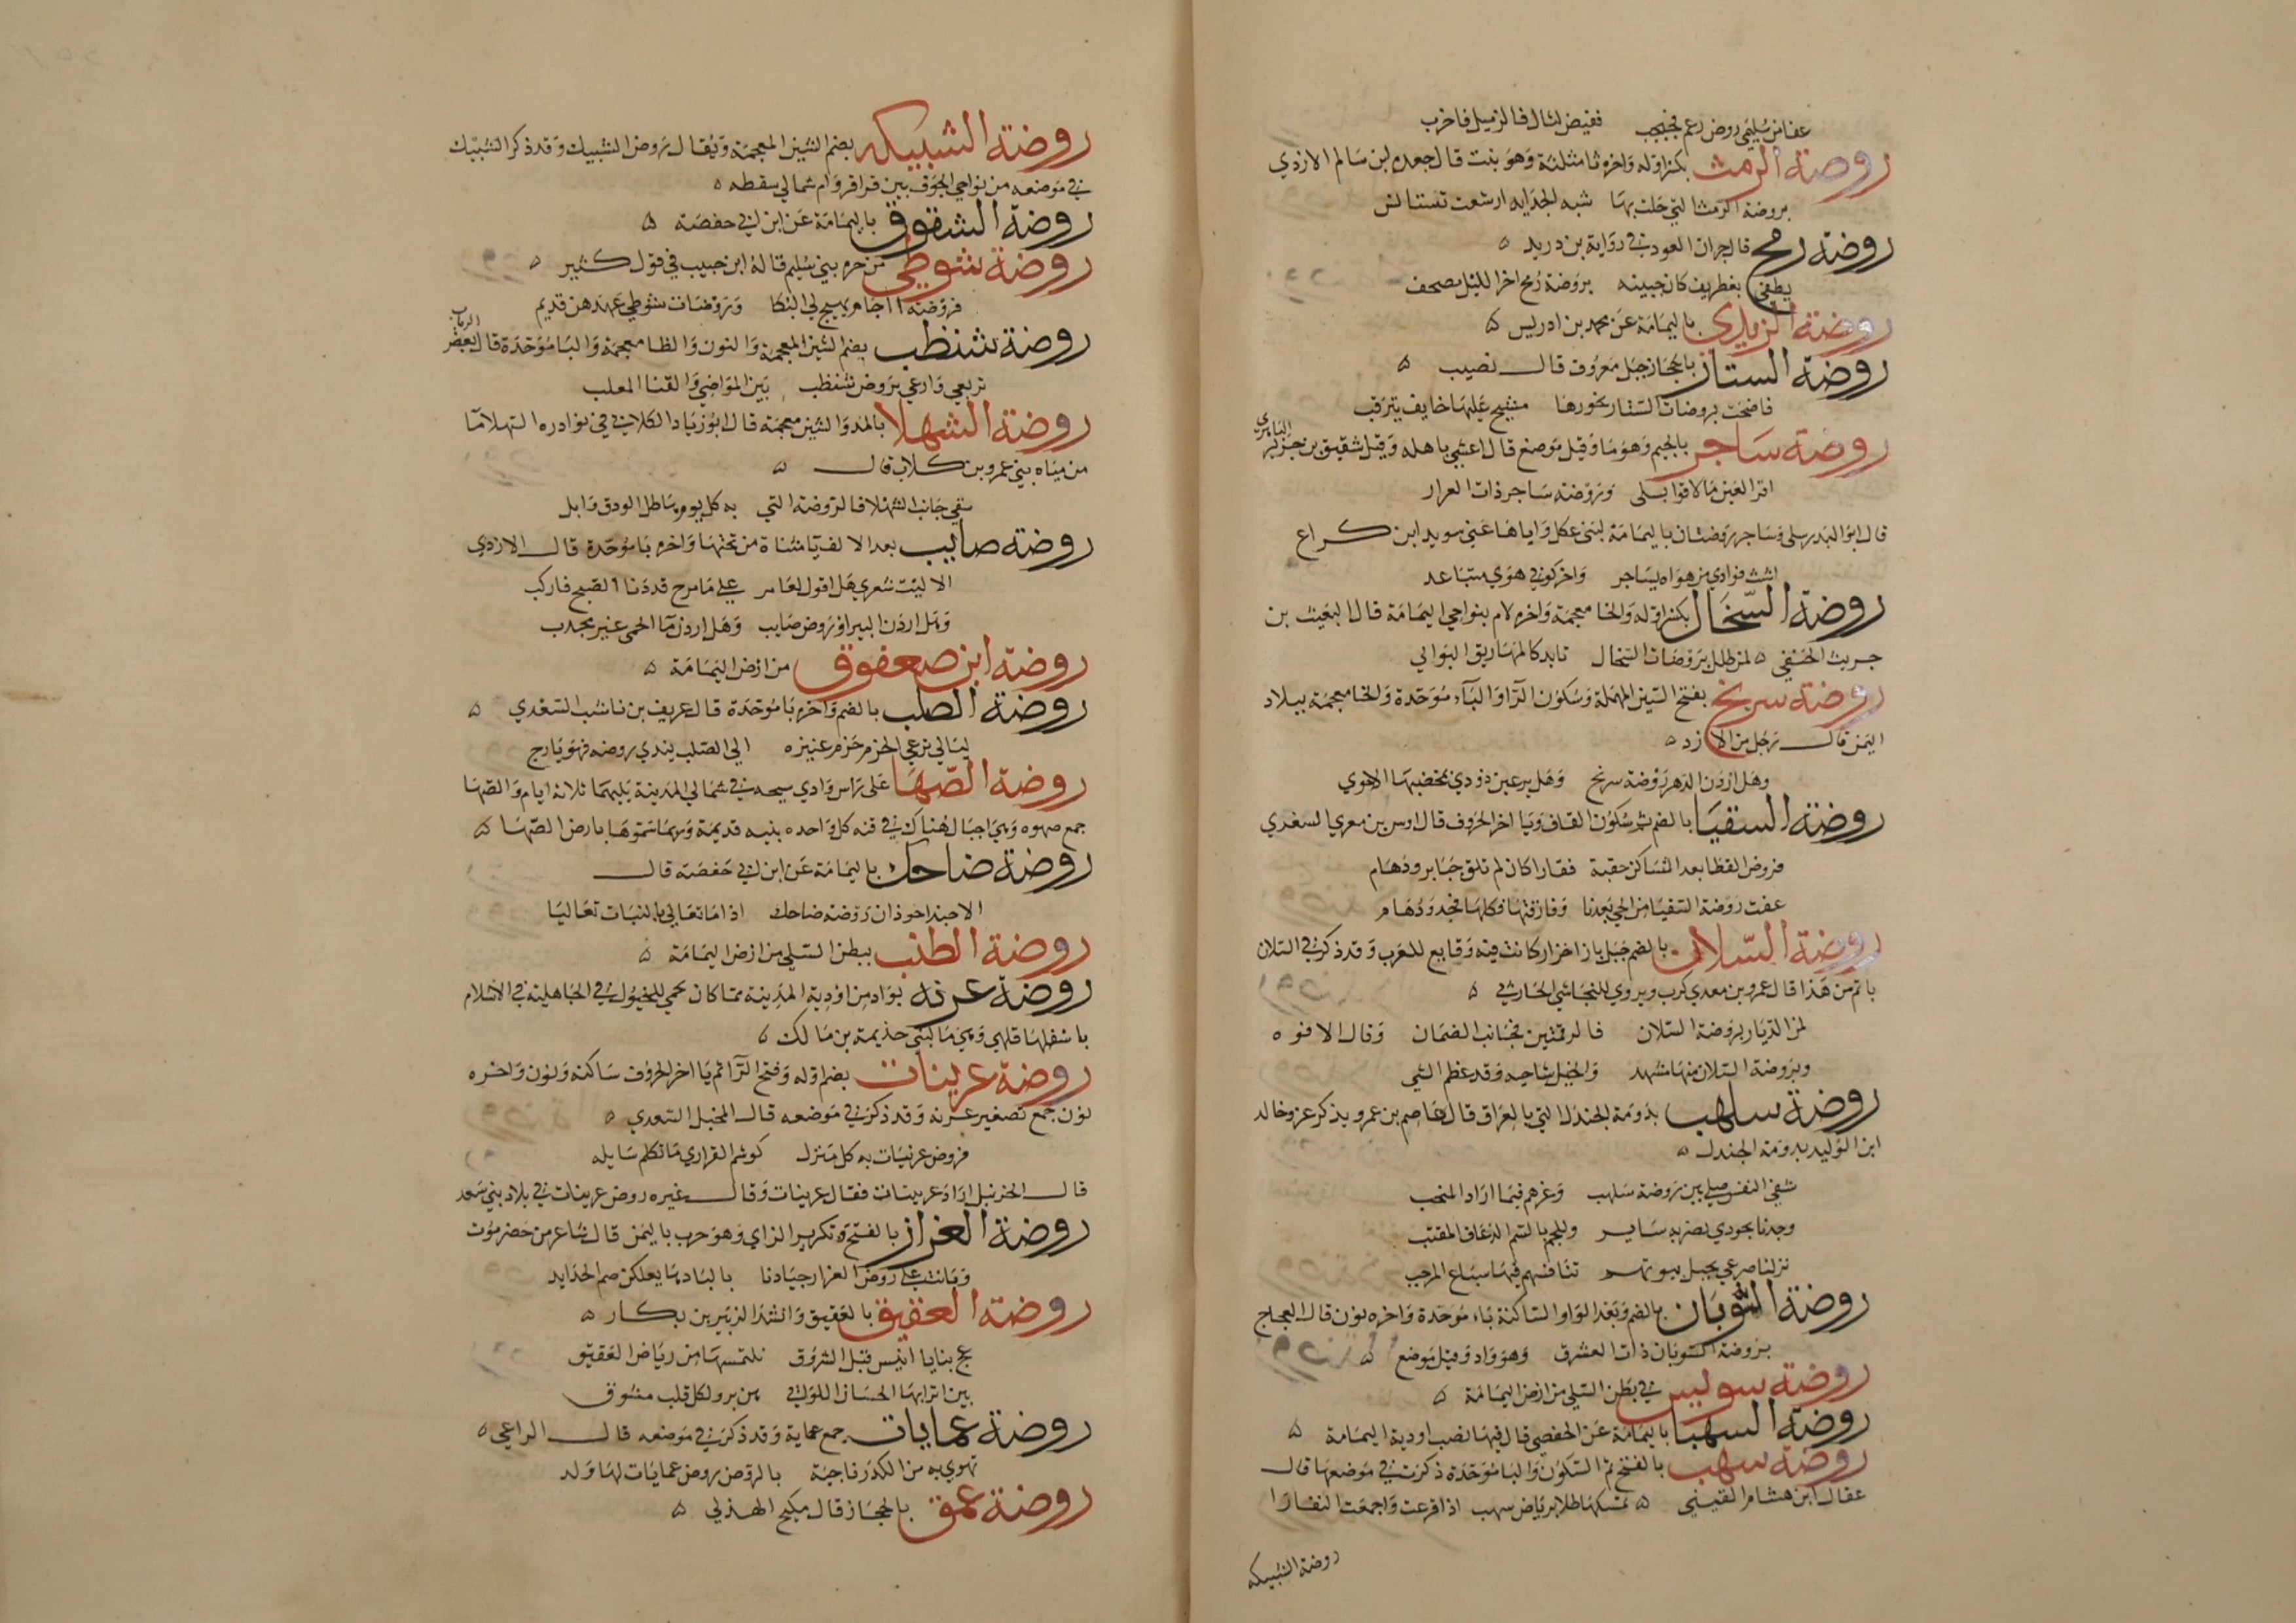 عفا من سليمى روض رعم فجبجب فغيض لثال فالزميل فاخرب
روضة الرمث بكسر اوله واخره ثا مثلثة وهو بنت قال جعدة بن سالم الازدي
بروضة الرمث التي حلت بها شبه الجداية ارشعت تستانس
روضة رمح قال جران العود في رواية بن دريد
يطفن بغطريف كان جبينه بروضة رمح اخر الليل مصحف
روضة الزيدي باليمامة عن محمد بن ادريس
روضة الستار بالحجاز جبل معروف قال نصيب
فاضحت بروضات الستار يحورها مشيح عليها خايف يترقب
روضة ساجر بالجيم وهو ما وقيل موضع قال اعشى باهلة وقيل شقيق بن جزء الباهري
اقر العين ما لاقوا بسلى وروضة ساجر ذات العرار
قال ابو الندى سلى وساجر روضتان باليمامة لبني عكل واياها عنى سويد ابن كراع
اشت فوادي من هواه بساجر واخر كوفي هوى متباعد
روضة السخال بكسر اوله والخا معجمة واخره لام بنواحي اليمامة قال البغيث بن
حريث الحنفي لمن طلل بروضات السخال تابد كالمهاريق البوالي
روضة سربخ بفتح السين المهملة وسكون الرا والبآء موحدة والخا معجمة ببلاد
اليمن قال رجل من الازد
وهل اردن الدهر روضة سربخ وهل يرعين ذودي بمخضبها الاحوي
روضة السقيا بالضم ثم سكون القاف ويا اخر الحروف قال اوس بن مغري السعدي
فروض القطا بعد التساكن حقبة فقارا كان لم تلق حيا برودهام
عفت روضة السقيا من الحي بعدنا وفارقتها وكلها فجد ودهام
روضة السلان بالضم جبل بازا خزاز كانت فيه وقايع للعرب وقد ذكر في السلان
باتم من هذا قال عمرو بن معدي كرب ويروي للنجاشي الحارثي
لمن الديار بروضة السلان فالرقمتين بجانب الضمان وقال الافوه
وبروضة السلان منها مشهد والخيل شاحية وقد عظم الثبى
روضة سلهب بدومة الجندل التي بالعراق قال عاصم بن عمرو يذكر غزو خالد
ابن الوليد بدومة الجندل
شفى النفس قبلى بين روضة سلهب وغرهم فيما اراد المنجب
وجدنا بجودي بضربة ساير وللجمع بالسم الذعاف المقنب
نزلنا صرعى بجبل بيوتهم تنافسهم فيها سباع المرحب
روضة السوبان بالضم وبعد الواو الساكنة باء موحدة واخره نون قال العجاج
بروضة السوبان ذات العشرق وهو واد وقيل موضع
روضة سويس في بطن السلي من ارض اليمامة
روضة السهبا باليمامة عن الحفصي قال فيها تصب اودية اليمامة
روضة سهب بالفتح ثم السكون والبا موحدة ذكرت في موضعها قال
عقال ابن هشام القيني تسكها طلا برياض سهب اذا فزعت واجمعت النفارا
روضة الشبيكه
روضة الشبيكه بضم الشين المعجمة ويقال روض الشبيك وقد ذكر الشبيك
في موضعه من نواحي الجوف بين قراقر وام شمالي بسقطه
روضة الشقوق باليمامة عن ابن ابي حفصة
روضة شوطى من حرة بني سليم قاله ابن حبيب في قول كثير
فروضة آجام تهيج لي البكا وروضات شوطى عهدهن قديم
روضة شنظب بضم الشين المعجمة والنون والظا معجمة والبا موحدة قال بعض الرباب
تربعي وارعي بروض شنظب بين المواضي والقنا المعلب
روضة الشهلا بالمد والشين معجمة قال ابو زياد الكلابي في نوادره الشهلا ما
من مياه بني عمرو بن كلاب قال
سقى جانب الشهلا فالروضة التي به كل يوم هاطل الودق وابل
روضة صايب بعد الالف يا مثناة من تحتها واخره با موحدة قال الازدي
الا ليت شعري هل اقول لعامر على ما مرح قد دنا الصبح فاركب
وهل اردن البير او روض صايب وهل اردن ما الحمى غير مجدب
روضة ابن صعفوق من ارض اليمامة
روضة الصلب بالضم واخره با موحدة قال عريف بن ناشب السعدي
ليالي ترعى الحزم حزم عنيزة الى الصلب يندى روضه فهو يارج
روضة الصها على راس وادي سيحه في شمالي المدينة بينهما ثلاثة ايام والصها
جمع صهوه وهي اجبال هناك في قنه كل واحده بنيه قديمة وربما سموها بارض الصها
روضة ضاحك باليمامة عن ابن ابي حفصة قال
الا حبذا حوذان روضة ضاحك اذا ما تعالى بالنبات تعاليا
روضة الطنب ببطن السلي من ارض اليمامة
روضة عرنة بواد من اودية المدينة مما كان يحمى للخيول في الجاهلية في الاسلام
باسفلها قلهى وهي ما لبني جذيمة بن مالك
روضة عرينات بضم اوله وفتح الرآ ثم يا اخر الحروف ساكنة ونون واخره
نون جمع تصغير عرنة وقد ذكر في موضعه قال المخبل السعدي
فروض عرنيات به كل منزل كوشم القراري ما تكلم سايله
قال الخرنبل اراد عرينات فقال عرنيات وقال غيره روض عرينات في بلاد بني سعد
روضة العزاز بالفتح وتكرير الزاي وهو حرب باليمن قال شاعر من حضرموت
وقانت على روض العزاز جيادنا بالبادها يعلكن صم الحدايد
روضة العقيق بالعقيق وانشد الزبير بن بكار
عج بنا يا انيس قبل الشروق نلتمسها من رياض العقيق
بين اترابها الحسان اللواتي هن برو لكل قلب مشوق
روضة عمايات جمع عماية وقد ذكر في موضعه قال الراعي
تهوي به من الكدر ناجية بالروض روض عمايات لها ولد
روضة عمق بالحجاز قال مليح الهذلي